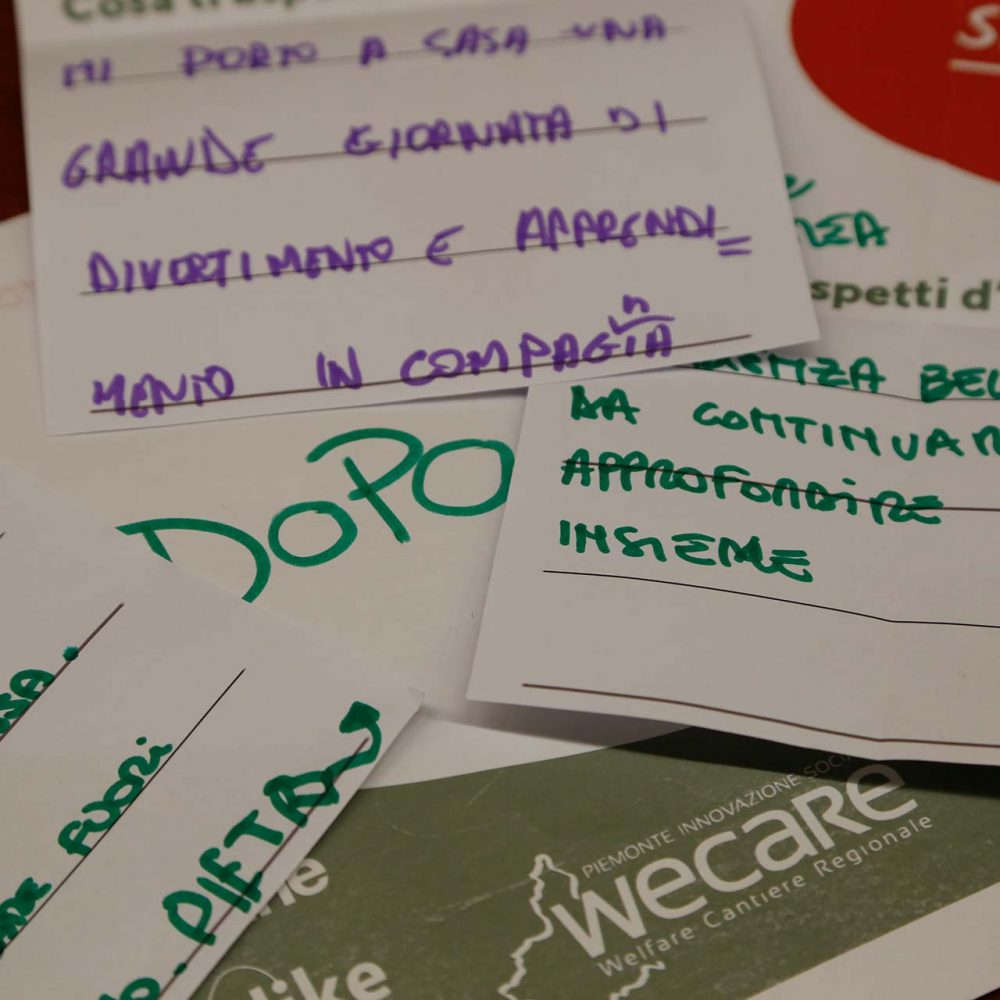 Cosa
MI PORTO A SASA UNA
GRANDE GIORNATA DI
DIVERTIMENTO E APPRENDI=
MENTO IN COMPAGnIA
spetti d'
BEL
DA CONTINUAR
APPROFONDIRE
INSIEME
DOPO
FUORI
DIETA
PIEMONTE INNOVAZIONE SOCI
wecare
Welfare Cantiere Regionale
like